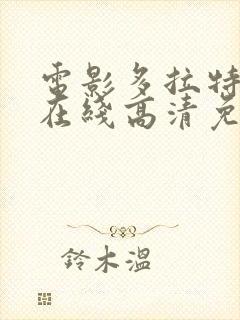 電影多拉特
在綫高清免
鈴木溫